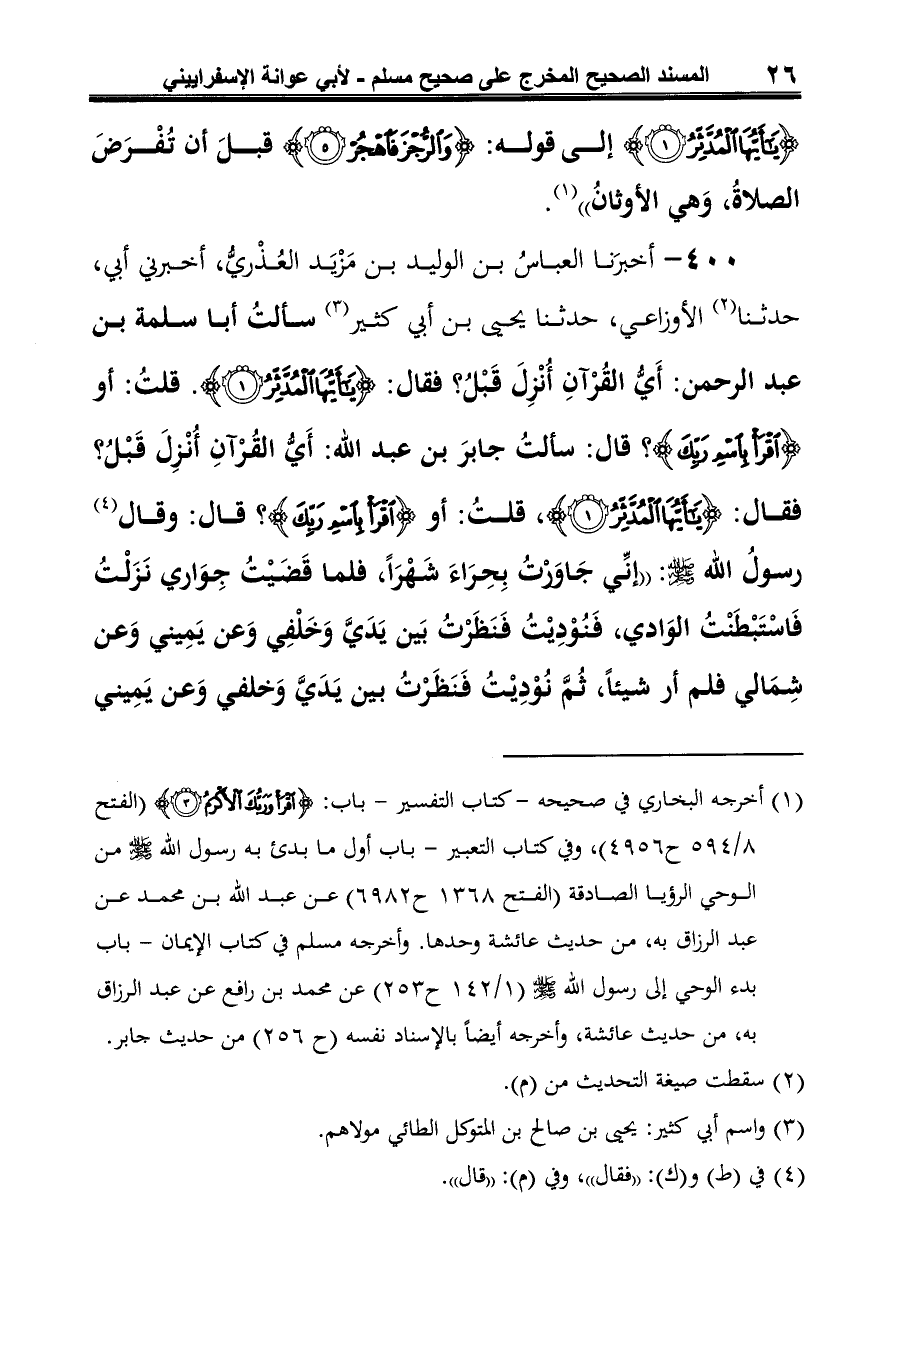 ٢٦ المسند الصحيح المخرج على صحيح مسلم - لأبي عوانة الإسفراييني
﴿يَٰٓأَيُّهَا ٱلْمُدَّثِّرُ ١﴾ إلى قوله: ﴿وَٱلرُّجْزَ فَٱهْجُرْ ٥﴾ قبلَ أن تُفْرَضَ
الصلاةُ، وَهي الأوثانُ))(١).
٤٠٠- أخبرَنا العباسُ بن الوليد بن مَزْيَد العُذْريُّ، أخبرني أبي،
حدثنا(٢) الأوزاعي، حدثنا يحيى بن أبي كثير(٣) سألتُ أبا سلمة بن
عبد الرحمن: أَيُّ القُرْآنِ أُنْزِلَ قَبْلُ؟ فقال: ﴿يَٰٓأَيُّهَا ٱلْمُدَّثِّرُ ١﴾. قلتُ: أو
﴿ٱقْرَأْ بِٱسْمِ رَبِّكَ﴾؟ قال: سألتُ جابرَ بن عبد الله: أَيُّ القُرْآنِ أُنْزِلَ قَبْلُ؟
فقال: ﴿يَٰٓأَيُّهَا ٱلْمُدَّثِّرُ ١﴾، قلتُ: أو ﴿ٱقْرَأْ بِٱسْمِ رَبِّكَ﴾؟ قال: وقال(٤)
رسولُ الله ﷺ: ((إنِّي جَاوَرْتُ بِحِرَاءَ شَهْرَاً، فلما قَضَيْتُ جِوَاري نَزَلْتُ
فَاسْتَبْطَنْتُ الوَادي، فَنُوْدِيْتُ فَنَظَرْتُ بَين يَدَيَّ وَخَلْفِي وَعَن يَمِيني وَعن
شِمَالي فلم أر شيئاً، ثُمَّ نُوْدِيْتُ فَنَظَرْتُ بين يَدَيَّ وَخلفي وَعن يَمِيني
(١) أخرجه البخاري في صحيحه -كتاب التفسير - باب: ﴿ٱقْرَأْ وَرَبُّكَ ٱلْأَكْرَمُ ٣﴾ (الفتح
٥٩٤/٨ ح٤٩٥٦)، وفي كتاب التعبير - باب أول ما بدئ به رسول الله ﷺ من
الوحي الرؤيا الصادقة (الفتح ١٣٦٨ ح٦٩٨٢) عن عبد الله بن محمد عن
عبد الرزاق به، من حديث عائشة وحدها. وأخرجه مسلم في كتاب الإيمان - باب
بدء الوحي إلى رسول الله ﷺ (١٤٢/١ ح٢٥٣) عن محمد بن رافع عن عبد الرزاق
به، من حديث عائشة، وأخرجه أيضاً بالإسناد نفسه (ح ٢٥٦) من حديث جابر.
(٢) سقطت صيغة التحديث من (م).
(٣) واسم أبي كثير: يحيى بن صالح بن المتوكل الطائي مولاهم.
(٤) في (ط) و(ك): ((فقال))، وفي (م): ((قال)).